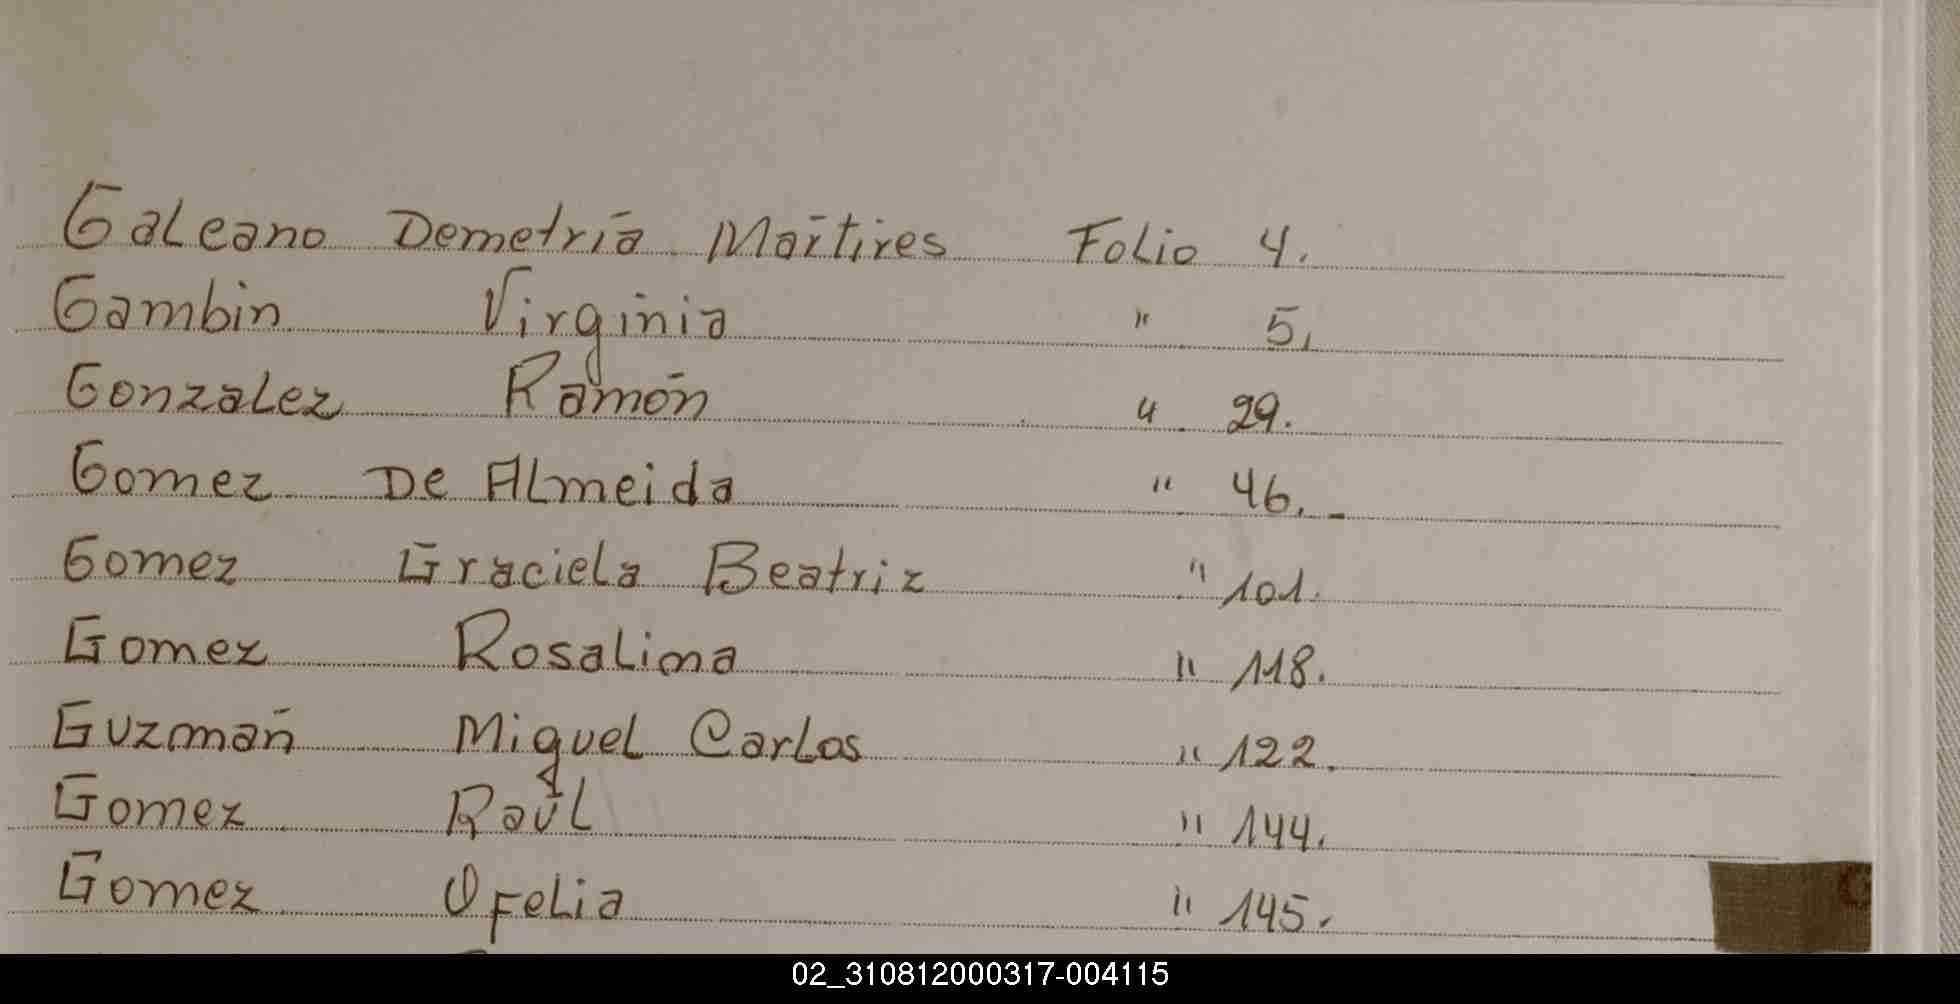 Galeano Demetria Martires Folio 4.
Gambin Virginia " 5.
Gonzalez Ramón " 29.
Gomez De Almeida " 46.-
Gomez Graciela Beatriz " 101.
Gomez Rosalina " 118.
Guzmán Miguel Carlos " 122.
Gomez Raúl " 144.
Gomez Ofelia " 145.
02_310812000317-004115